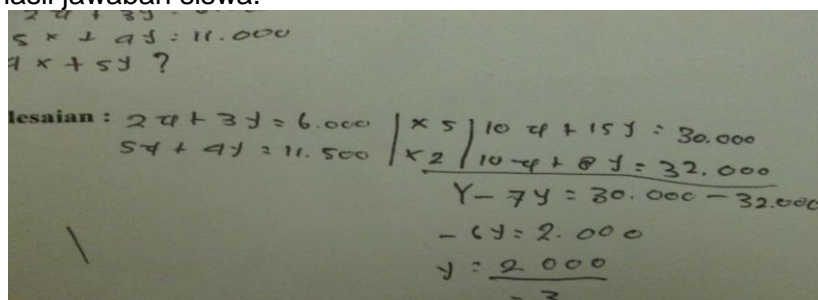 hasil jawaban siswa.
5x + 4y = 11.000
4x + 5y ?
lesaian : 2x + 3y = 6.000 | x 5 | 10x + 15y = 30.000
5x + 4y = 11.500 | x 2 | 10x + 8y = 32.000
Y - 7y = 30.000 - 32.000
- 6y = 2.000
y = 2 000
- 3